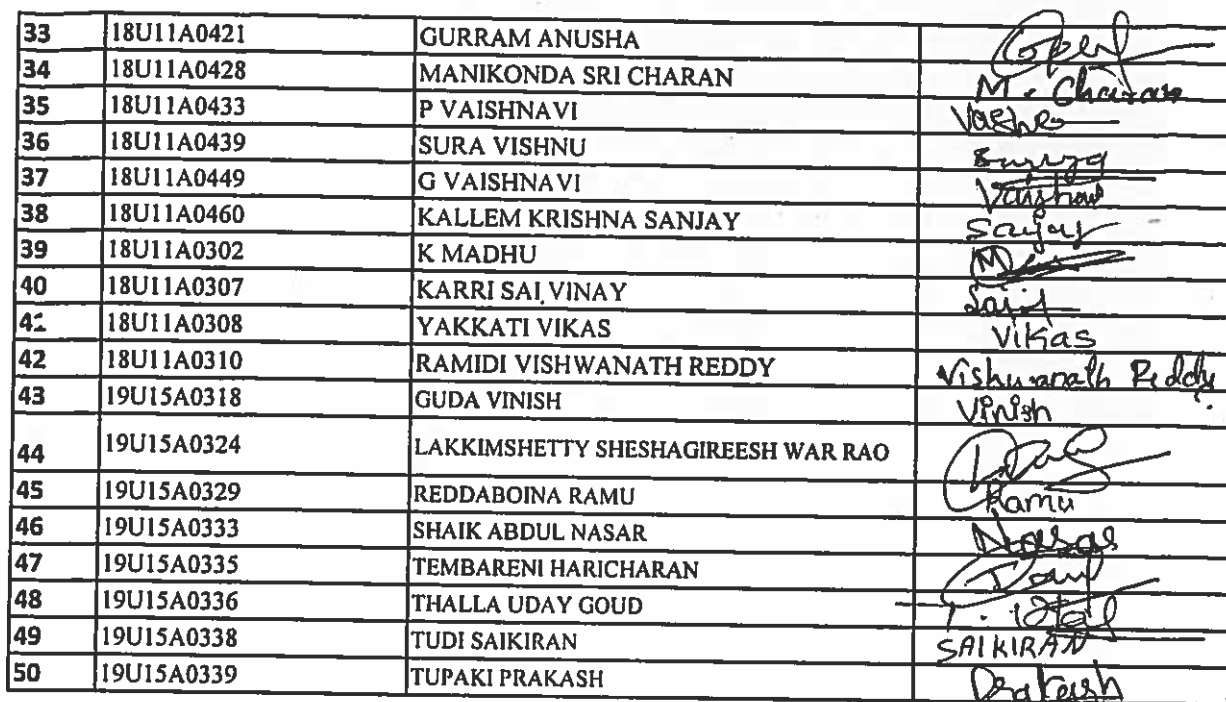 33 18U11A0421 GURRAM ANUSHA
34 18U11A0428 MANIKONDA SRI CHARAN M. Charan
35 18U11A0433 P VAISHNAVI
36 18U11A0439 SURA VISHNU
37 18U11A0449 G VAISHNAVI
38 18U11A0460 KALLEM KRISHNA SANJAY Sanjay
39 18U11A0302 K MADHU
40 18U11A0307 KARRI SAI VINAY
41 18U11A0308 YAKKATI VIKAS Vikas
42 18U11A0310 RAMIDI VISHWANATH REDDY Vishwanath Reddy
43 19U15A0318 GUDA VINISH Vinish
44 19U15A0324 LAKKIMSHETTY SHESHAGIREESH WAR RAO
45 19U15A0329 REDDABOINA RAMU Ramu
46 19U15A0333 SHAIK ABDUL NASAR
47 19U15A0335 TEMBARENI HARICHARAN
48 19U15A0336 THALLA UDAY GOUD
49 19U15A0338 TUDI SAIKIRAN SAIKIRAN
50 19U15A0339 TUPAKI PRAKASH Prakash